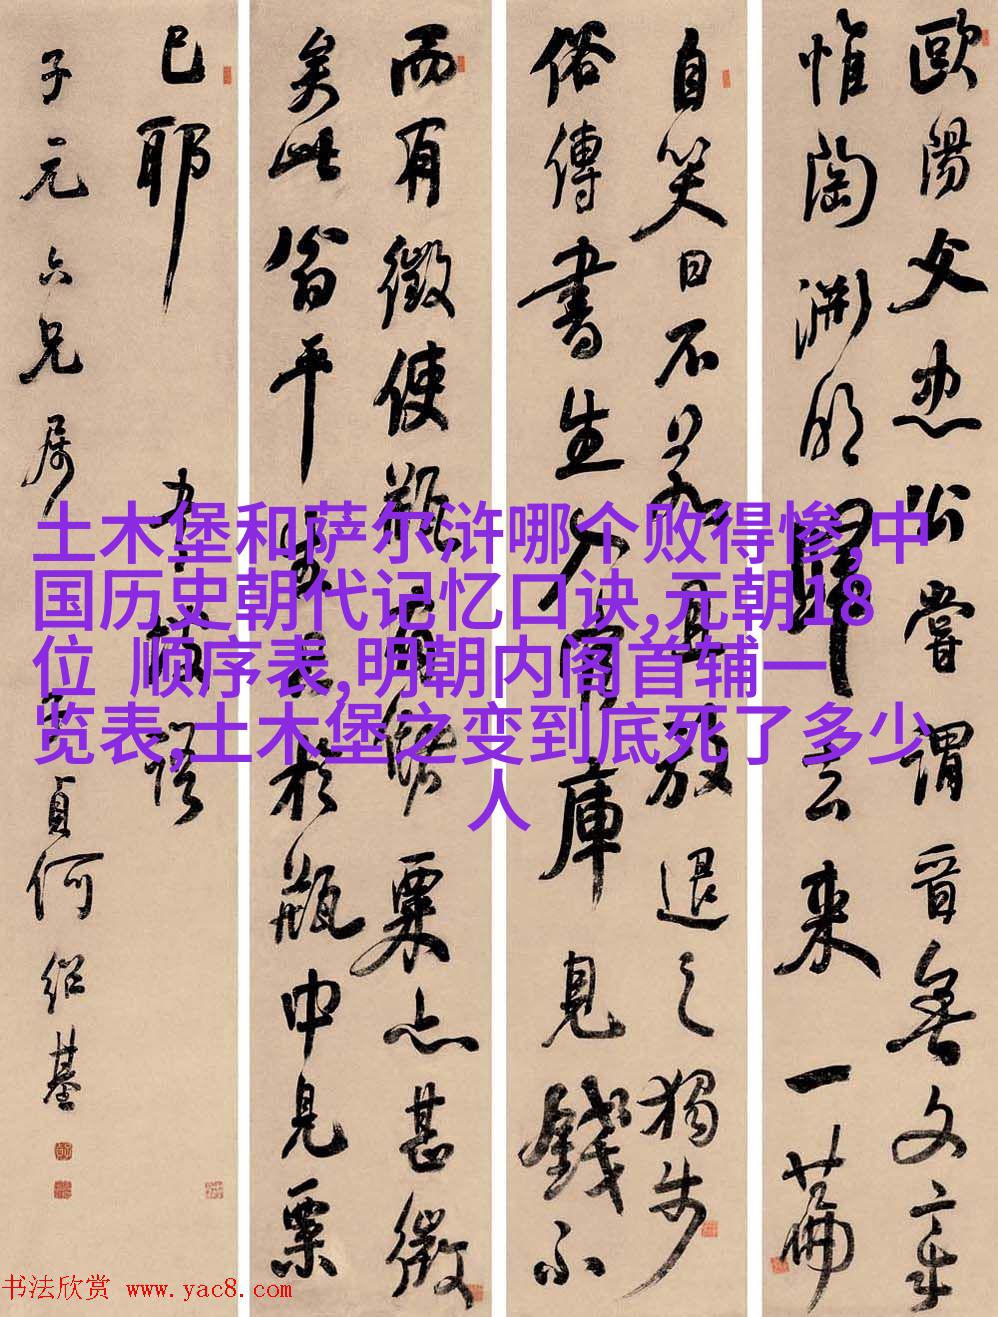 歐陽文忠公嘗謂晉無文章
惟陶淵明歸去來一篇
自笑曰不若且放退之獨步
俗傳書生入官庫見錢不
而有徵使瓶有儲粟亦甚微
矣此翁平於瓶中見粟
已耶
子元六兄屬
子貞何紹基
土木堡和萨尔浒哪个败得惨,中
国历史朝代记忆口诀,元朝18
位 顺序表,明朝内阁首辅一
览表,土木堡之变到底死了多少
人
书法欣赏 www.yac8.com